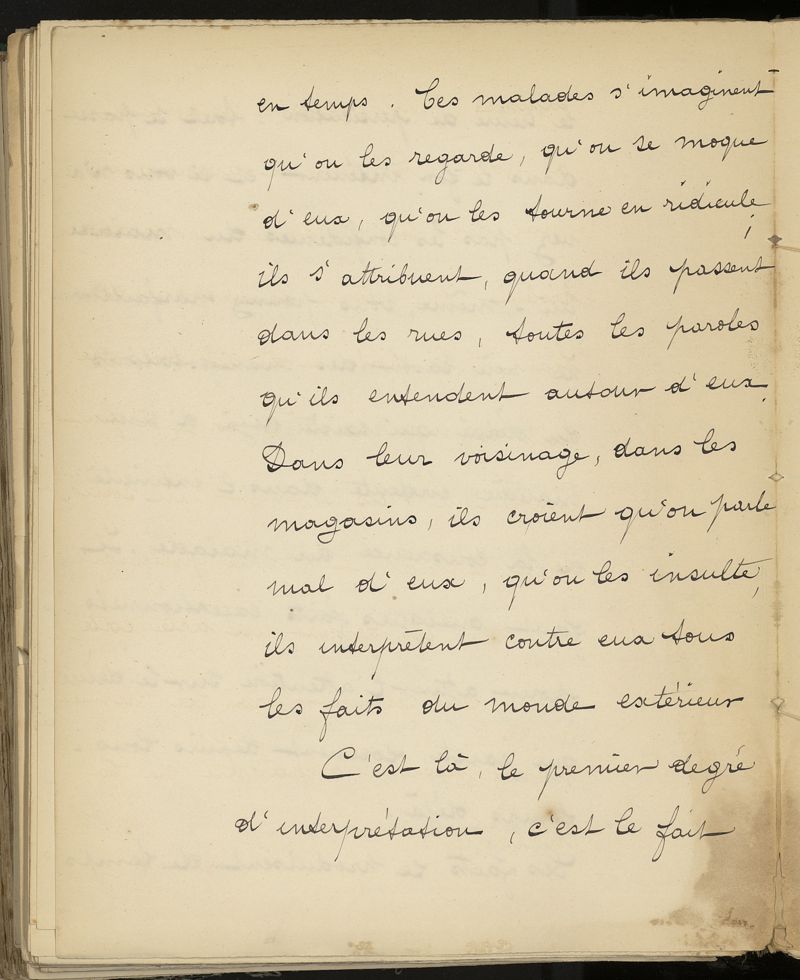 en temps. Ces malades s'imaginent
qu'on les regarde, qu'on se moque
d'eux, qu'on les tourne en ridicule;
ils s'attribuent, quand ils passent
dans les rues, toutes les paroles
qu'ils entendent autour d'eux.
Dans leur voisinage, dans les
magasins, ils croient qu'on parle
mal d'eux, qu'on les insulte,
ils interprètent contre eux tous
les faits du monde extérieur
C'est là, le premier degré
d'interprétation, c'est le fait